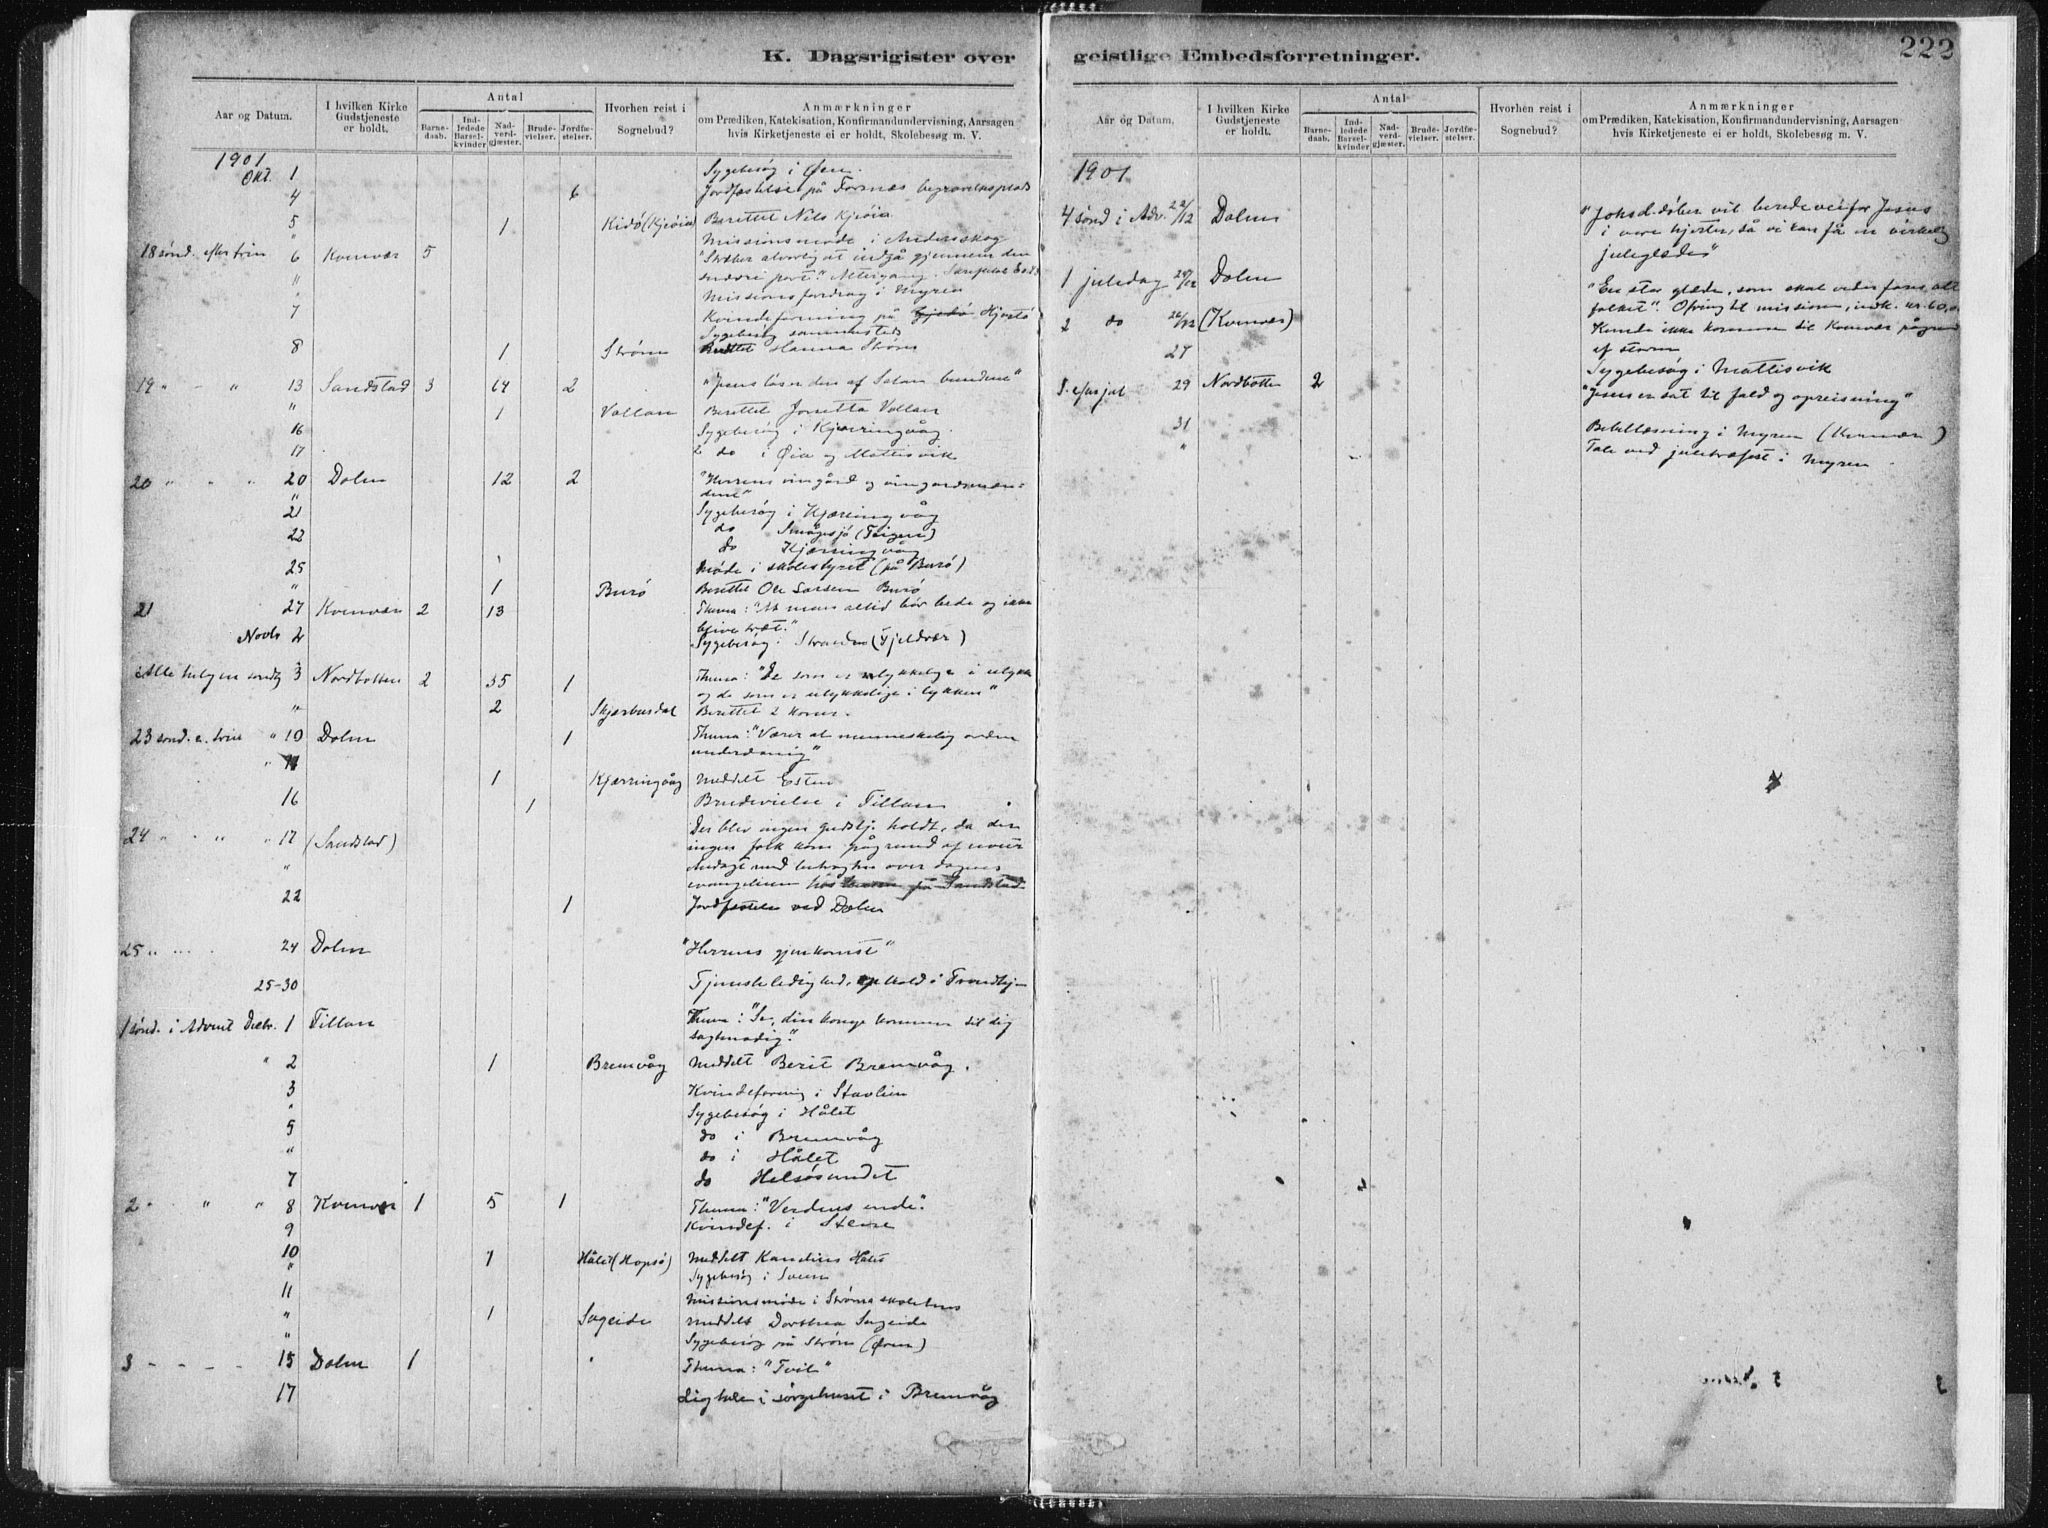 K. Dagsrigister over
Aar og Datum. I hvilken Kirke Gudstjeneste er holdt. Antal Barnedaab. Indledede Barselkvinder Nadverdgjæster. Brudevielser. Jordfæstelser. Hvorhen reist i Sognebud? Anmærkninger om Prædiken, Katekisation, Konfirmandundervisning, Aarsagen hvis Kirketjeneste ei er holdt, Skolebesøg m. V.
1901
Okt. 1 Sygebesøg i Øen.
4 6 Jordfæstelse på Forsnæs begravelsesplads
5 1 Kidø (Kjeøia) Berettet Nils Kjeøia
" Missionsmøde i Andersskog
18 sønd. efter trin 6 Kvenvær 5 "Stræber alvorlig at indgå gjennem den
snævre port." Altergang.
" Missionsforedrag i Myren
7 Kvindeforening på Gjedø Hjertø
Sygebesøg sammesteds
8 1 Strøm Berettet Hanna Strøm
19 " - " 13 Sandstad 3 64 2 "Jesus løser den af Satan bundne"
" 1 Vollan Berettet Jonetta Vollan
16 Sygebesøg i Kjerringvåg.
17 do i Øia og Mattisvik
20 " " " 20 Dolm 12 2 "Herrens vingård og vingårdsmæn=
dene"
" 21 Sygebesøg i Kjæringvåg
22 do (Teigen)
do Kjærringvåg
25 Møde i skolestyret (på Burø)
" 1 Burø Berettet Ole Larsen Burø
21 27 Kvenvær 2 13 Thema: "At man altid bør bede og ikke
blive træt."
Novb 2 Sygebesøg i Stranden (Fjeldvær)
Alle helgen søndg 3 Nordbotten 2 35 1 Thema: "De som er lykkelige i ulykke
og de som er ulykkelige i lykken"
" 2 Skjærbusdal Berettet 2 koner.
23 sønd. e. trin " 10 Dolm 1 Thema: "Værer al menneskelig orden
underdanig"
" 11 1 Kjærringvåg Meddelt Esten
16 1 Brudevielse i Fillan
24 " " " " 17 (Sandstad) Der blev ingen gudstj. holdt, da der
ingen folk kom på grund af uveir
" Andagt med betragtn over dagens
evangelium hos på Sandstad
22 1 Jordfæstelse ved Dolm
25 " .... 24 Dolm "Herrens gjenkomst"
25-30 Tjenstledighed, ophold i Trondhj-
1 sønd. i Advent Decbr. 1 Fillan Thema: "Se, din konge kommer til dig
sagtmodig."
" 2 1 Bremvåg Meddelt Berit Bremvåg.
3 Kvindeforening i Stavlien
" Sygebesøg i Hålet
5 do i Bremvåg
" do i Hålet
7 do Helsøsundet
2 - " " 8 Kvenvær 1 5 1 Thema: "Verdens ende".
9 Kvindef. i Stene
10 1 Hålet (Hopsø) Meddelt Hålet
" Sygebesøg i
11 Missionsmøde i Strøms skolehus
" 1 Sageide Meddelt Dorthea Sageide
" Sygebesøg på Strøm (Øren)
3 - - - - 15 Dolm 1 Thema: "Tvil"
17 Ligtale i sørgehuset i Bremvåg
geistlige Embedsforretninger.
222
Aar og Datum. I hvilken Kirke Gudstjeneste er holdt. Antal Barnedaab. Indledede Barselkvinder Nadverdgjæster. Brudevielser. Jordfæstelser. Hvorhen reist i Sognebud? Anmærkninger om Prædiken, Katekisation, Konfirmandundervisning, Aarsagen hvis Kirketjeneste ei er holdt, Skolebesøg m. V.
1901
4 sønd i Adv. 22/12 Dolm døber vil berede vei for Jesus
i vore hjerter, så vi kan få en virkelig
juleglæde"
1 juledag 25/12 Dolm "En stor glæde, som skal vederfares alt
folket". Ofring til mission, indk. kr. 60,0
2 do 26/12 (Kvenvær) Kunde ikke komme til Kvenvær pågrund
af storm
27 Sygebesøg i Mattisvik
S. efter jul 29 Nordbotten 2 "Jesus er sat til fald og opreisning"
31 Bibellæsning i Myren (Kvenvær)
" Tale ved juletræfest i Myren